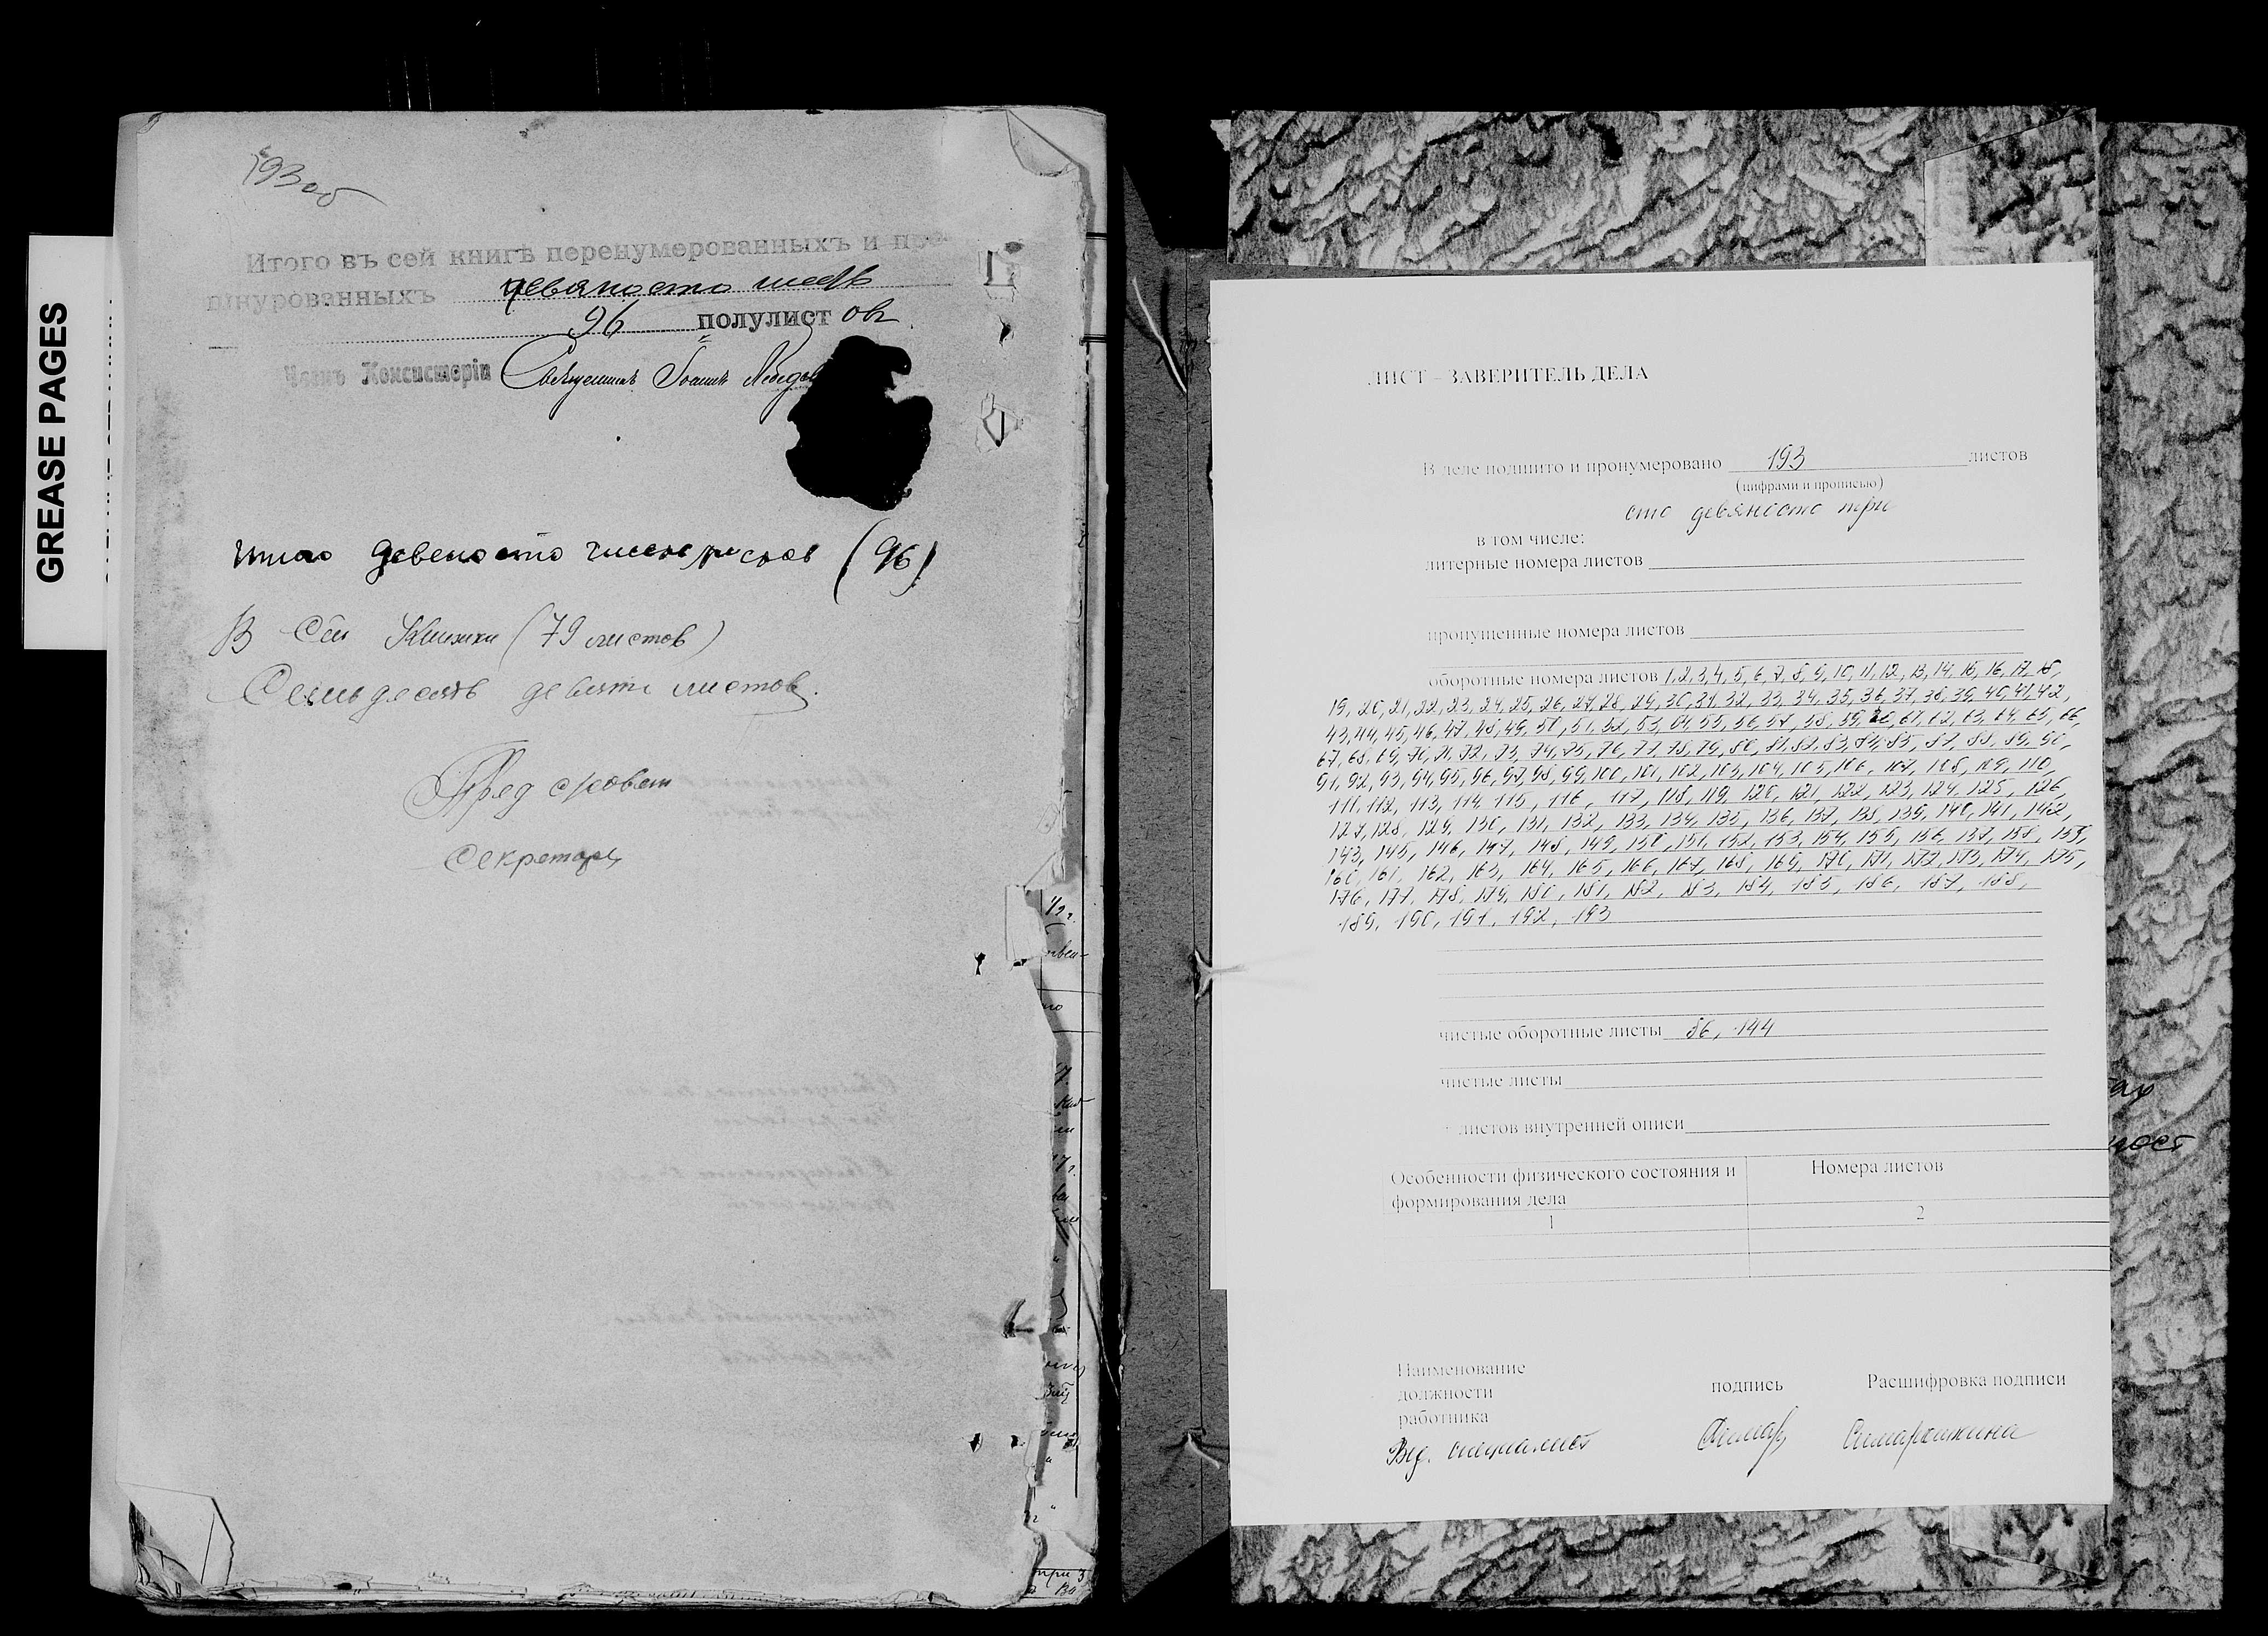 GREASE PAGES
193 об
Итого въ сей книгѣ перенумерованныхъ и про-
шнурованныхъ девяносто шесть
96 полулист овъ
Членъ Консисторіи Священникъ Іоаннъ Лебедев
Итого девеносто шесть листов (96)
В Сей Книжки (79 листов)
Семьдесять девять листов.
Пред совета
Секретарь
ЛИСТ – ЗАВЕРИТЕЛЬ ДЕЛА
В деле подшито и пронумеровано 193 листов
(цифрами и прописью)
сто девяносто три
в том числе:
литерные номера листов
пропущенные номера листов
оборотные номера листов 1, 2, 3, 4, 5, 6, 7, 8, 9, 10, 11, 12, 13, 14, 15, 16, 17, 18,
19, 20, 21, 22, 23, 24, 25, 26, 27, 28, 29, 30, 31, 32, 33, 34, 35, 36, 37, 38, 39, 40, 41, 42,
43, 44, 45, 46, 47, 48, 49, 50, 51, 52, 53, 54, 55, 56, 57, 58, 59, 60, 61, 62, 63, 64, 65, 66,
67, 68, 69, 70, 71, 72, 73, 74, 75, 76, 77, 78, 79, 80, 81, 82, 83, 84, 85, 87, 88, 89, 90,
91, 92, 93, 94, 95, 96, 97, 98, 99, 100, 101, 102, 103, 104, 105, 106, 107, 108, 109, 110,
111, 112, 113, 114, 115, 116, 117, 118, 119, 120, 121, 122, 123, 124, 125, 126,
127, 128, 129, 130, 131, 132, 133, 134, 135, 136, 137, 138, 139, 140, 141, 142,
143, 145, 146, 147, 148, 149, 150, 151, 152, 153, 154, 155, 156, 157, 158, 159,
160, 161, 162, 163, 164, 165, 166, 167, 168, 169, 170, 171, 172, 173, 174, 175,
176, 177, 178, 179, 180, 181, 182, 183, 184, 185, 186, 187, 188,
189, 190, 191, 192, 193
чистые оборотные листы 86, 144
чистые листы
+ листов внутренней описи
Особенности физического состояния и Номера листов
формирования дела
1 2
Наименование
должности подпись Расшифровка подписи
работника
Вед. специалист Симар Симарокина